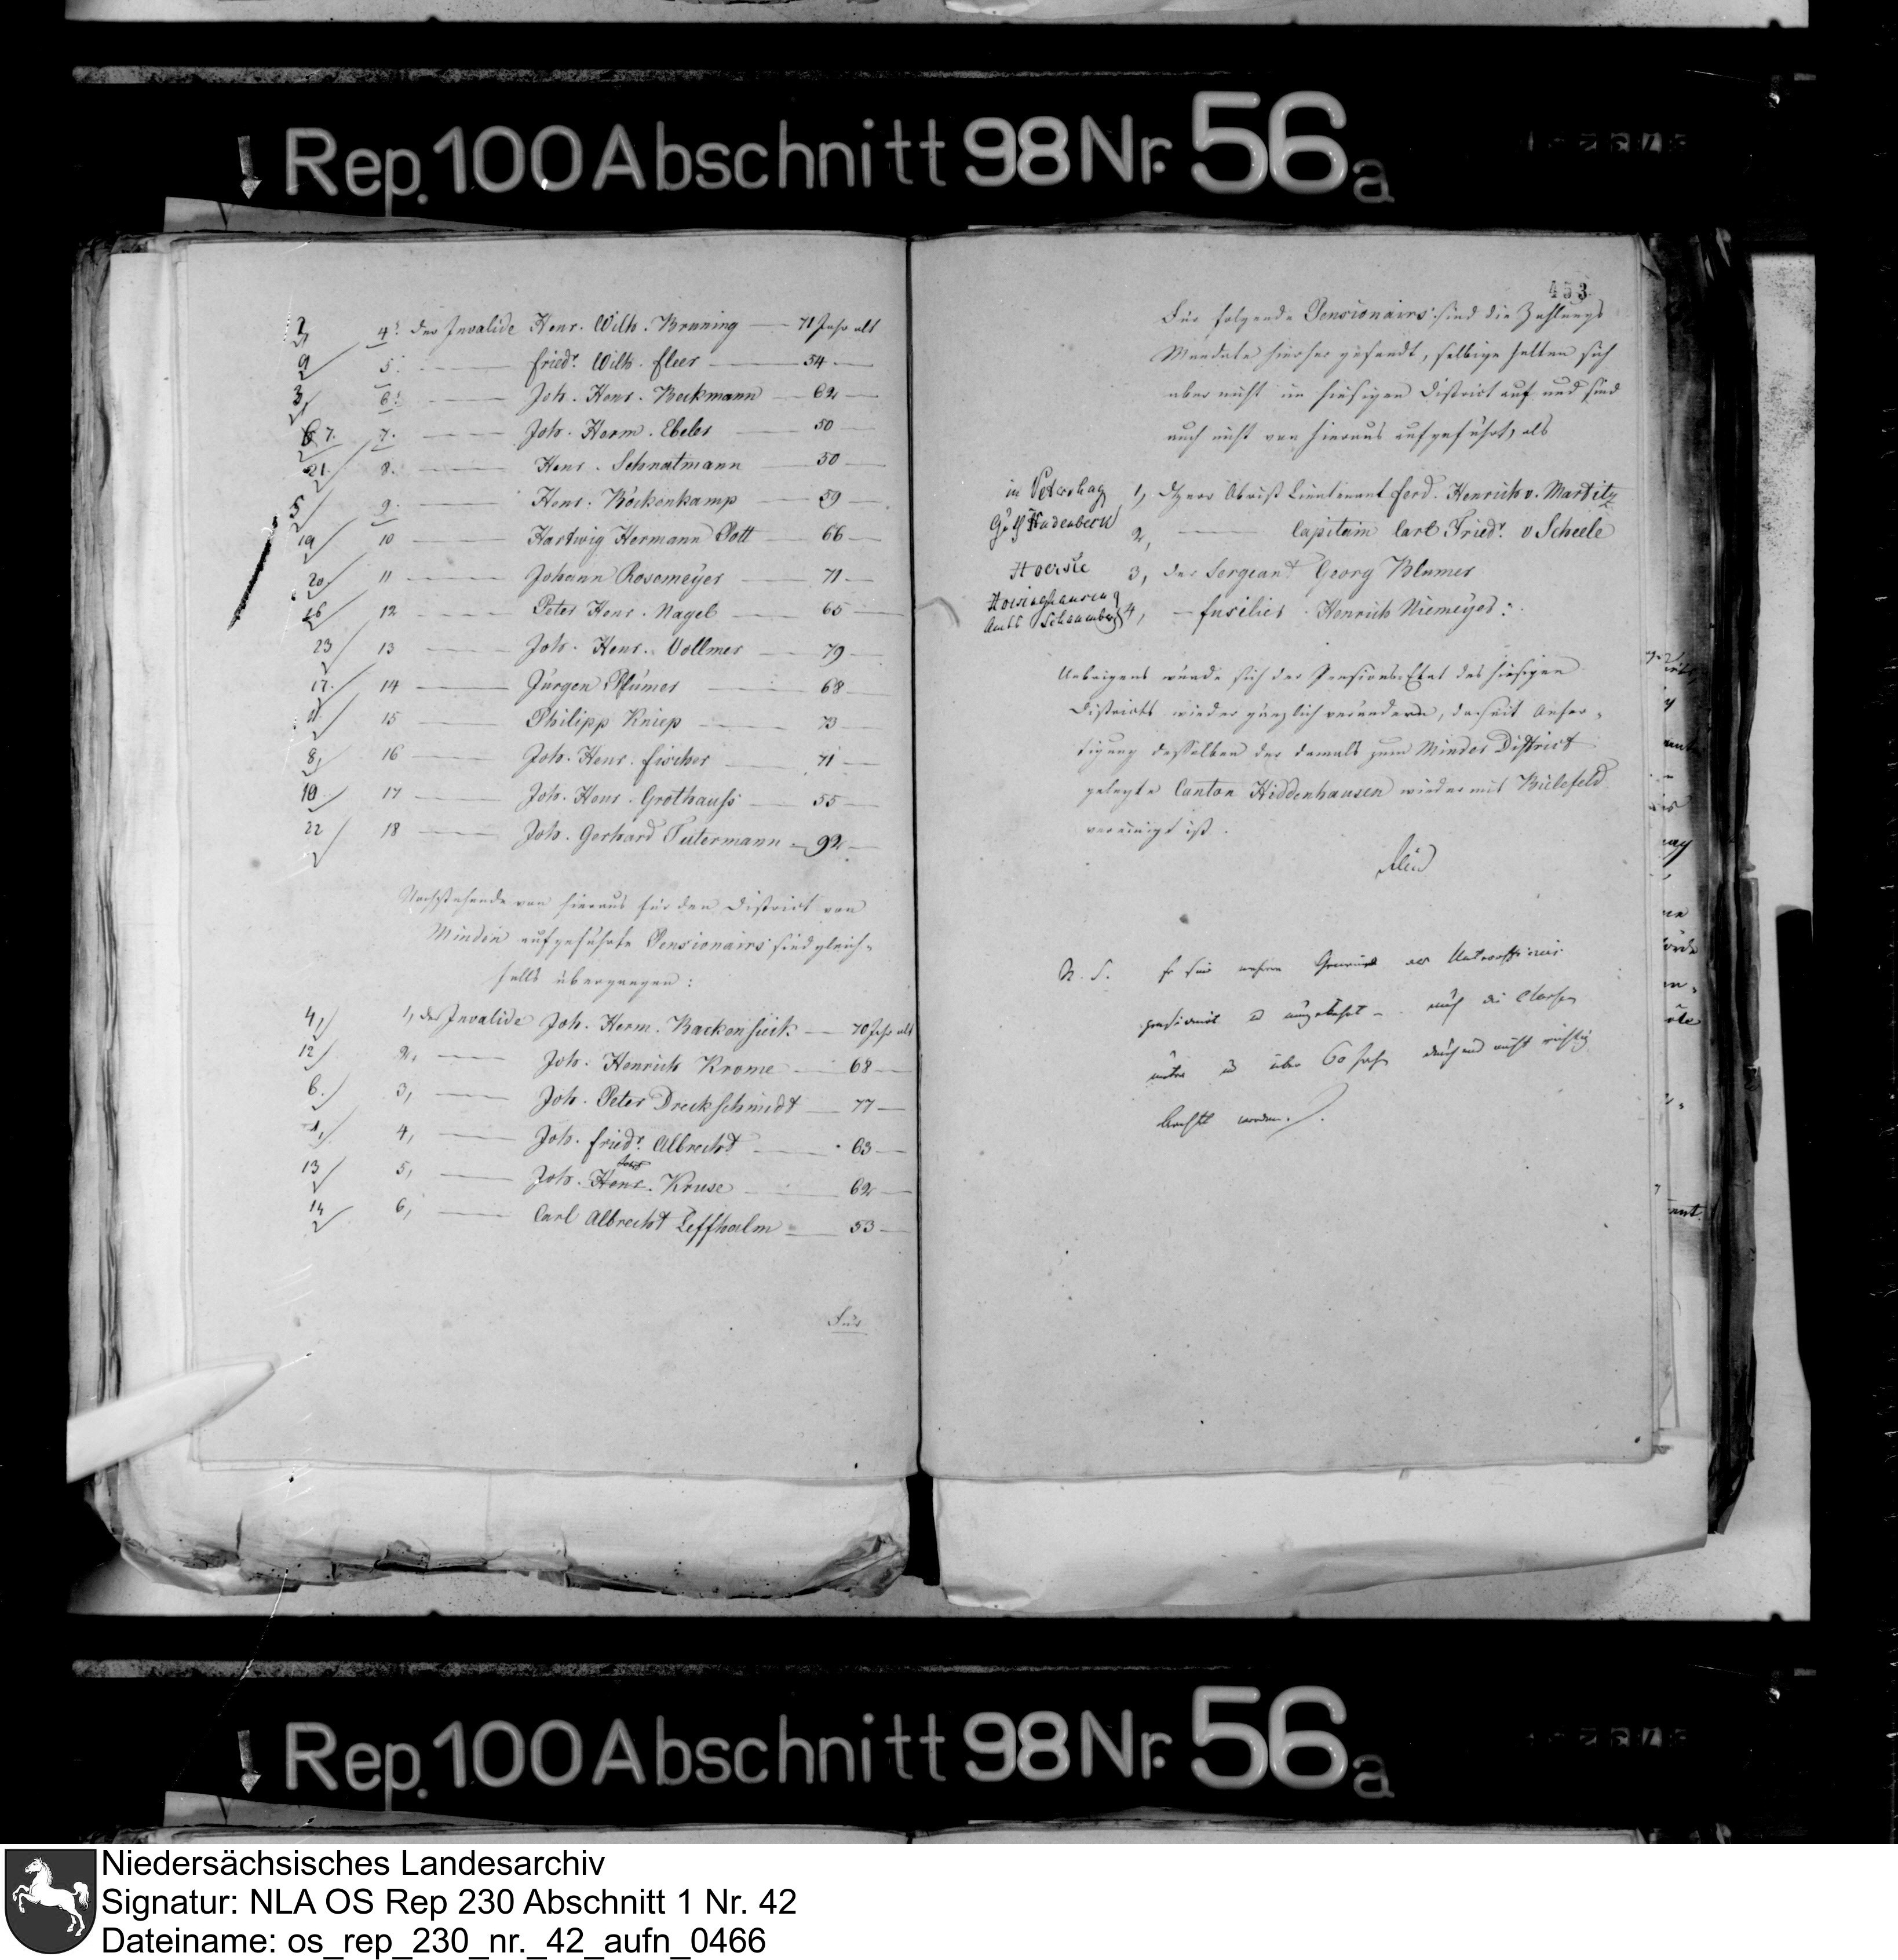 Rep. 100 Abschnitt 98 Nr. 56a
2, 4. Der Invalide Henr. Wilh. Bruning — 71 Jahr alt
9 5. — Friedr. Wilh. Fleer — 54 —
3, 6. — Joh. Henr. Beckmann — 62 —
7. 7. — Joh. Herm. Ebeler — 50 —
21. 8. — Henr. Schnatmann — 50 —
5 9. — Henr. Böckenkamp — 59 —
19 10 — Hartwig Hermann Pott — 66 —
20, 11 — Johann Rosemeyer — 71 —
16 12 — Peter Henr. Nagel — 65 —
23 13 — Joh. Henr. Vollmer — 79 —
17. 14 — Jürgen Plümer — 68 —
15 — Philipp Kniep — 73 —
8, 16 — Joh. Henr. Fischer — 71 —
10 17 — Joh. Henr. Grothauss — 55 —
22 18 — Joh. Gerhard Petermann — 92 —
Nachstehende von hieraus für den District von
Minden aufgeführte Pensionairs sind gleich-
falls übergangen:
4, 1, der Invalide Joh. Herm. Backensieck — 70 Jahr alt
12 2, — Joh. Henrich Krome — 68 —
6. 3, — Joh. Peter Dreckschmidt — 77 —
1, 4, — Joh. Friedr. Albrecht — 63 —
13 5, — Joh. Henr. Kruse — 62 —
14 6, — Carl Albrecht Leffhalm — 53 —
Für
453
Für folgende Pensionairs sind die Zahlungs
Mandate hierher gesandt, selbige halten sich
aber nicht im hiesigen District auf und sind
auch nicht von hieraus aufgeführt, als
in Petershag 1, Herr Obrist Lieutenant Ferd. Henrich v. Martitz
Guth Hadenbeck 2, — Capitain Carl Friedr. v Scheele
Hoerste 3, der Sergeant Georg Blumer
Amts Schaumberg 4, — Fuselier Henrich Niemeyer.
Uebrigens würde sich der Pensions-Etat des hiesigen
Districts wieder gänzlich verändern, da seit Anfer-
tigung desselben der damals zum Minder District
gelegte Canton Hiddenhausen wieder mit Bielefeld
vereinigt ist.
N. S. der Unterofficiers
über 60 Jahr nicht richtig
worden.
Rep. 100 Abschnitt 98 Nr. 56a
Niedersächsisches Landesarchiv
Signatur: NLA OS Rep 230 Abschnitt 1 Nr. 42
Dateiname: os_rep_230_nr._42_aufn_0466